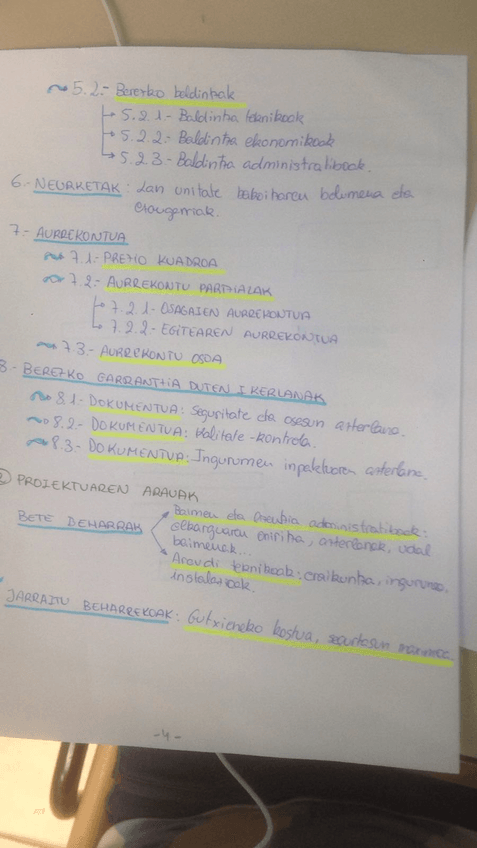 5.2.- Berezko baldintzak
5.2.1- Baldintza teknikoak
5.2.2- Baldintza ekonomikoak
5.2.3- Baldintza administratiboak.
6.- NEURKETAK: lan unitate bakoitzaren bolumena eta
ezaugarriak.
7.- AURREKONTUA
7.1.- PREZIO KUADROA
7.2.- AURREKONTU PARTZIALAK
7.2.1- OSAGAIEN AURREKONTUA
7.2.2- EGITEAREN AURREKONTUA
7.3.- AURREKONTU OSOA
8.- BEREZKO GARRANTZIA DUTEN IKERLANAK
8.1.- DOKUMENTUA: Seguritate eta osasun azterlana.
8.2.- DOKUMENTUA: Kalitate-kontrola.
8.3.- DOKUMENTUA: Ingurumen inpaktuaren azterlana.
PROIEKTUAREN ARAUAK
BETE BEHARREKOAK
Baimen eta administratiboak:
elkargoaren oniritzia, azterlanak, udal
baimenak...
Araudi teknikoak: eraikuntza, ingurumena,
instalazioak.
JARRAITU BEHARREKOAK: Gutxieneko kostua, segurtasun maximoa
-4-